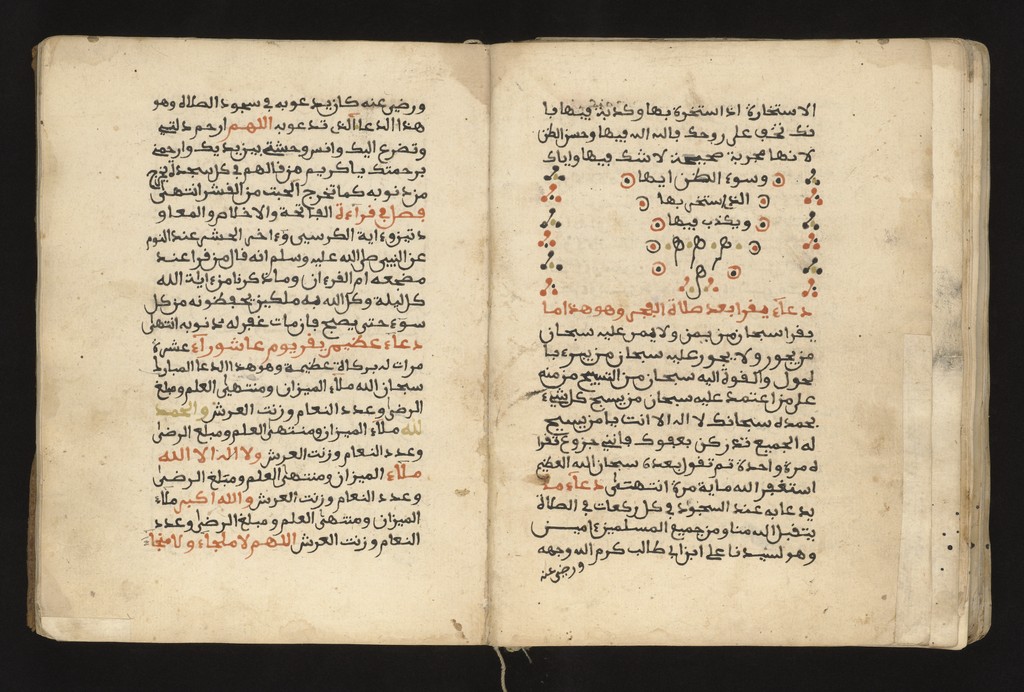 الاستخارة اذا استخرة بها وكذبة فيها با
نك تخب على روحك بالله الله فيها وحسن الظن
لانها مجربة صحيحة لا شك فيها واياك
وسوء الظن ايها
الذي استخر بها
ويكذب فيها
دعاء يقرا بعد صلاة الفجر وهو هذا ما
يقرا سبحان من يمن ولا يمن عليه سبحان
من يجور ولا يجور عليه سبحان من يبرء با
لحول والقوة اليه سبحان من التسبيح من منه
على من اعتمد عليه سبحان من يسبح كل شيء
بحمده سبحانك لا اله الا انت يا من يسبح
له الجميع تداركن بعفوك فانني جزوع تقرا
ه مرة واحدة ثم تقول بعده سبحان الله العظيم
استغفر الله ماية مرة انتهى دعاء ما
يدعا به عند السجود في كل ركعات في الصلاة
يتقبل الله منا ومن جميع المسلمين ءامين
وهو لسيدنا علي ابن ابي طالب كرم الله وجهه
ورضي عنه
ورضي عنه كان يدعو به في سجود الصلاة وهو
هذا الدعا الذي تدعو به اللهم ارحم ذلتي
وتضرع اليك وانس وحشتي بين يديك وارحمني
برحمتك يا كريم من قالهم في كل سجدة يخرج
من ذنوبه كما تخرج الحبت من القشر انتهى
فصل في قراءة الفاتحة والاخلاص والمعاو
ذتين وءاية الكرسي وءاخر الحشر عند النوم
عن النبي صلى الله عليه وسلم انه قال من قرا عند
مضجعه ام القرءان وما ذكرنا من ءاية الله
كل ليلة وكل الله به ملكين يحفظونه من كل
سوء حتى يصبح فان مات غفر له ذنوبه انتهى
دعاء عظيم يقر يوم عاشوراء عشرة
مرات له بركات عظيمة وهو هذا الدعا المبارك
سبحان الله ملاء الميزان ومنتهى العلم ومبلغ
الرضى وعدد النعام وزنت العرش والحمد
لله ملاء الميزان ومنتهى العلم ومبلغ الرضى
وعدد النعام وزنت العرش ولا اله الا الله
ملاء الميزان ومنتهى العلم ومبلغ الرضى
وعدد النعام وزنت العرش والله اكبر ملاء
الميزان ومنتهى العلم ومبلغ الرضى وعدد
النعام وزنت العرش اللهم لا ملجاء ولا منجاء